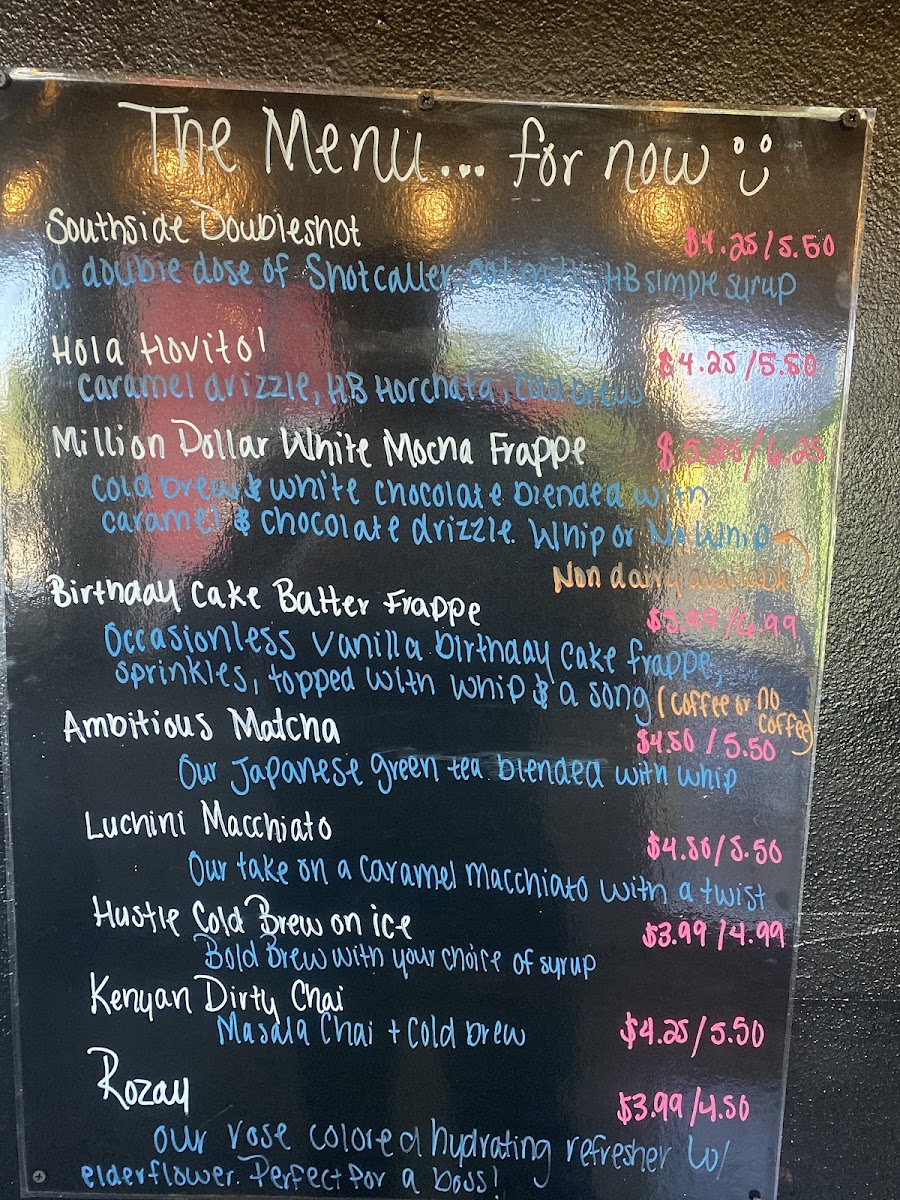 The Menu... for now
Southside Doubleshot $4.25/5.50
a double dose of Shotcaller, oat milk, HB simple syrup
Hola Hovito! $4.25/5.50
caramel drizzle, HB Horchata, cold brew
Million Dollar White Mocha Frappe $5.25/6.25
cold brew & white chocolate blended with
caramel & chocolate drizzle. Whip or No Whip
Non dairy available
Birthday Cake Batter Frappe $5.99/6.99
Occasionless vanilla birthday cake frappe,
sprinkles, topped with whip & a song (coffee or no
coffee)
Ambitious Matcha $4.50/5.50
Our Japanese green tea blended with whip
Luchini Macchiato $4.50/5.50
Our take on a caramel macchiato with a twist
Hustle Cold Brew on ice $3.99/4.99
Bold Brew with your choice of syrup
Kenyan Dirty Chai
Masala Chai + cold brew $4.25/5.50
Rozay $3.99/4.50
our rose colored hydrating refresher w/
elderflower. Perfect for a boss!